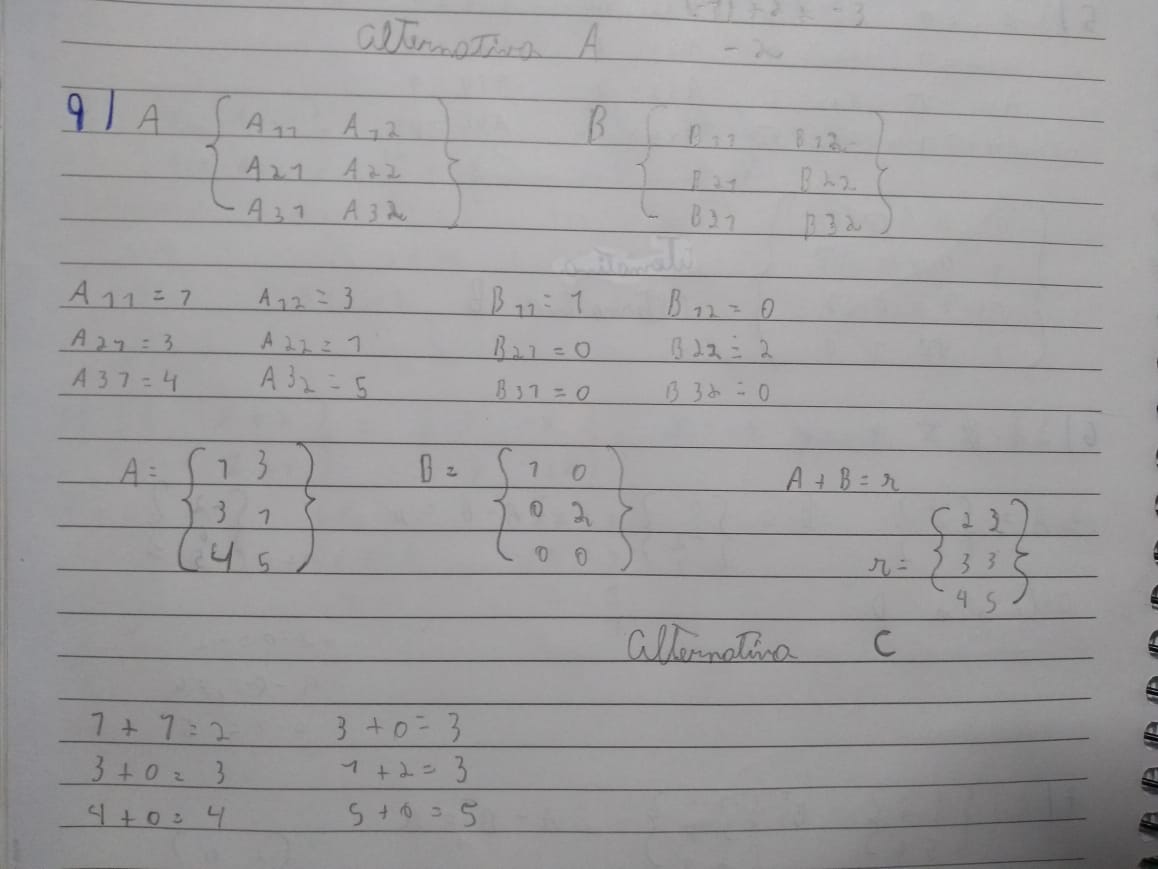 (-1) + 2 + -3
Alternativa A -2
9) A { A11 A12 B { B11 B12
A21 A22 B21 B22
A31 A32 B31 B32
A11 = 1 A12 = 3 B11 = 1 B12 = 0
A21 = 3 A22 = 1 B21 = 0 B22 = 2
A31 = 4 A32 = 5 B31 = 0 B32 = 0
A = { 1 3 } B = { 1 0 } A + B = r
3 1 0 2
4 5 0 0
r = { 2 3
3 3
4 5 }
Alternativa C
1 + 1 = 2 3 + 0 = 3
3 + 0 = 3 1 + 2 = 3
4 + 0 = 4 5 + 0 = 5